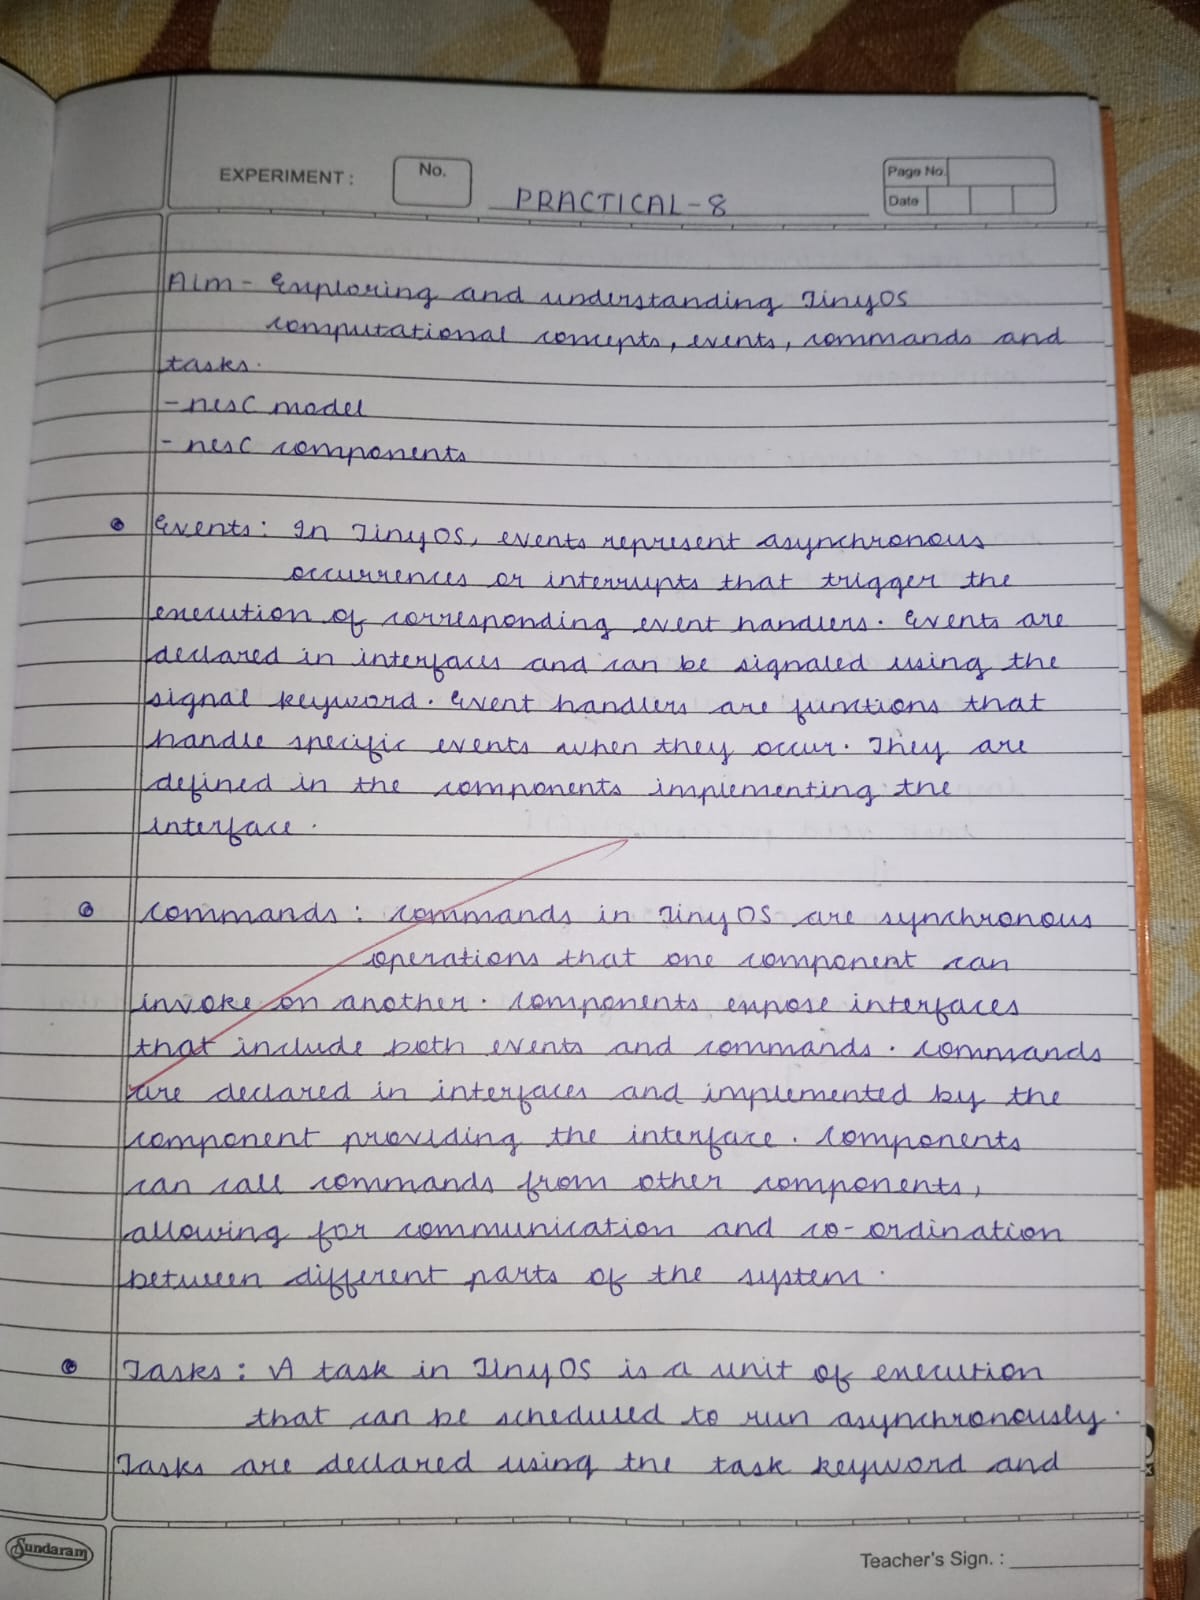 EXPERIMENT :
No.
PRACTICAL-8
Page No.
Date
Aim - Exploring and understanding TinyOS
computational concepts, events, commands and
tasks.
- nesC model
- nesC components
Events: In TinyOS, events represent asynchronous
occurrences or interrupts that trigger the
execution of corresponding event handlers. Events are
declared in interfaces and can be signaled using the
signal keyword. Event handlers are functions that
handle specific events when they occur. They are
defined in the components implementing the
interface.
Commands: Commands in TinyOS are synchronous
operations that one component can
invoke on another. Components expose interfaces
that include both events and commands. Commands
are declared in interfaces and implemented by the
component providing the interface. Components
can call commands from other components,
allowing for communication and co-ordination
between different parts of the system.
Tasks: A task in TinyOS is a unit of execution
that can be scheduled to run asynchronously.
Tasks are declared using the task keyword and
Sundaram
Teacher's Sign. :